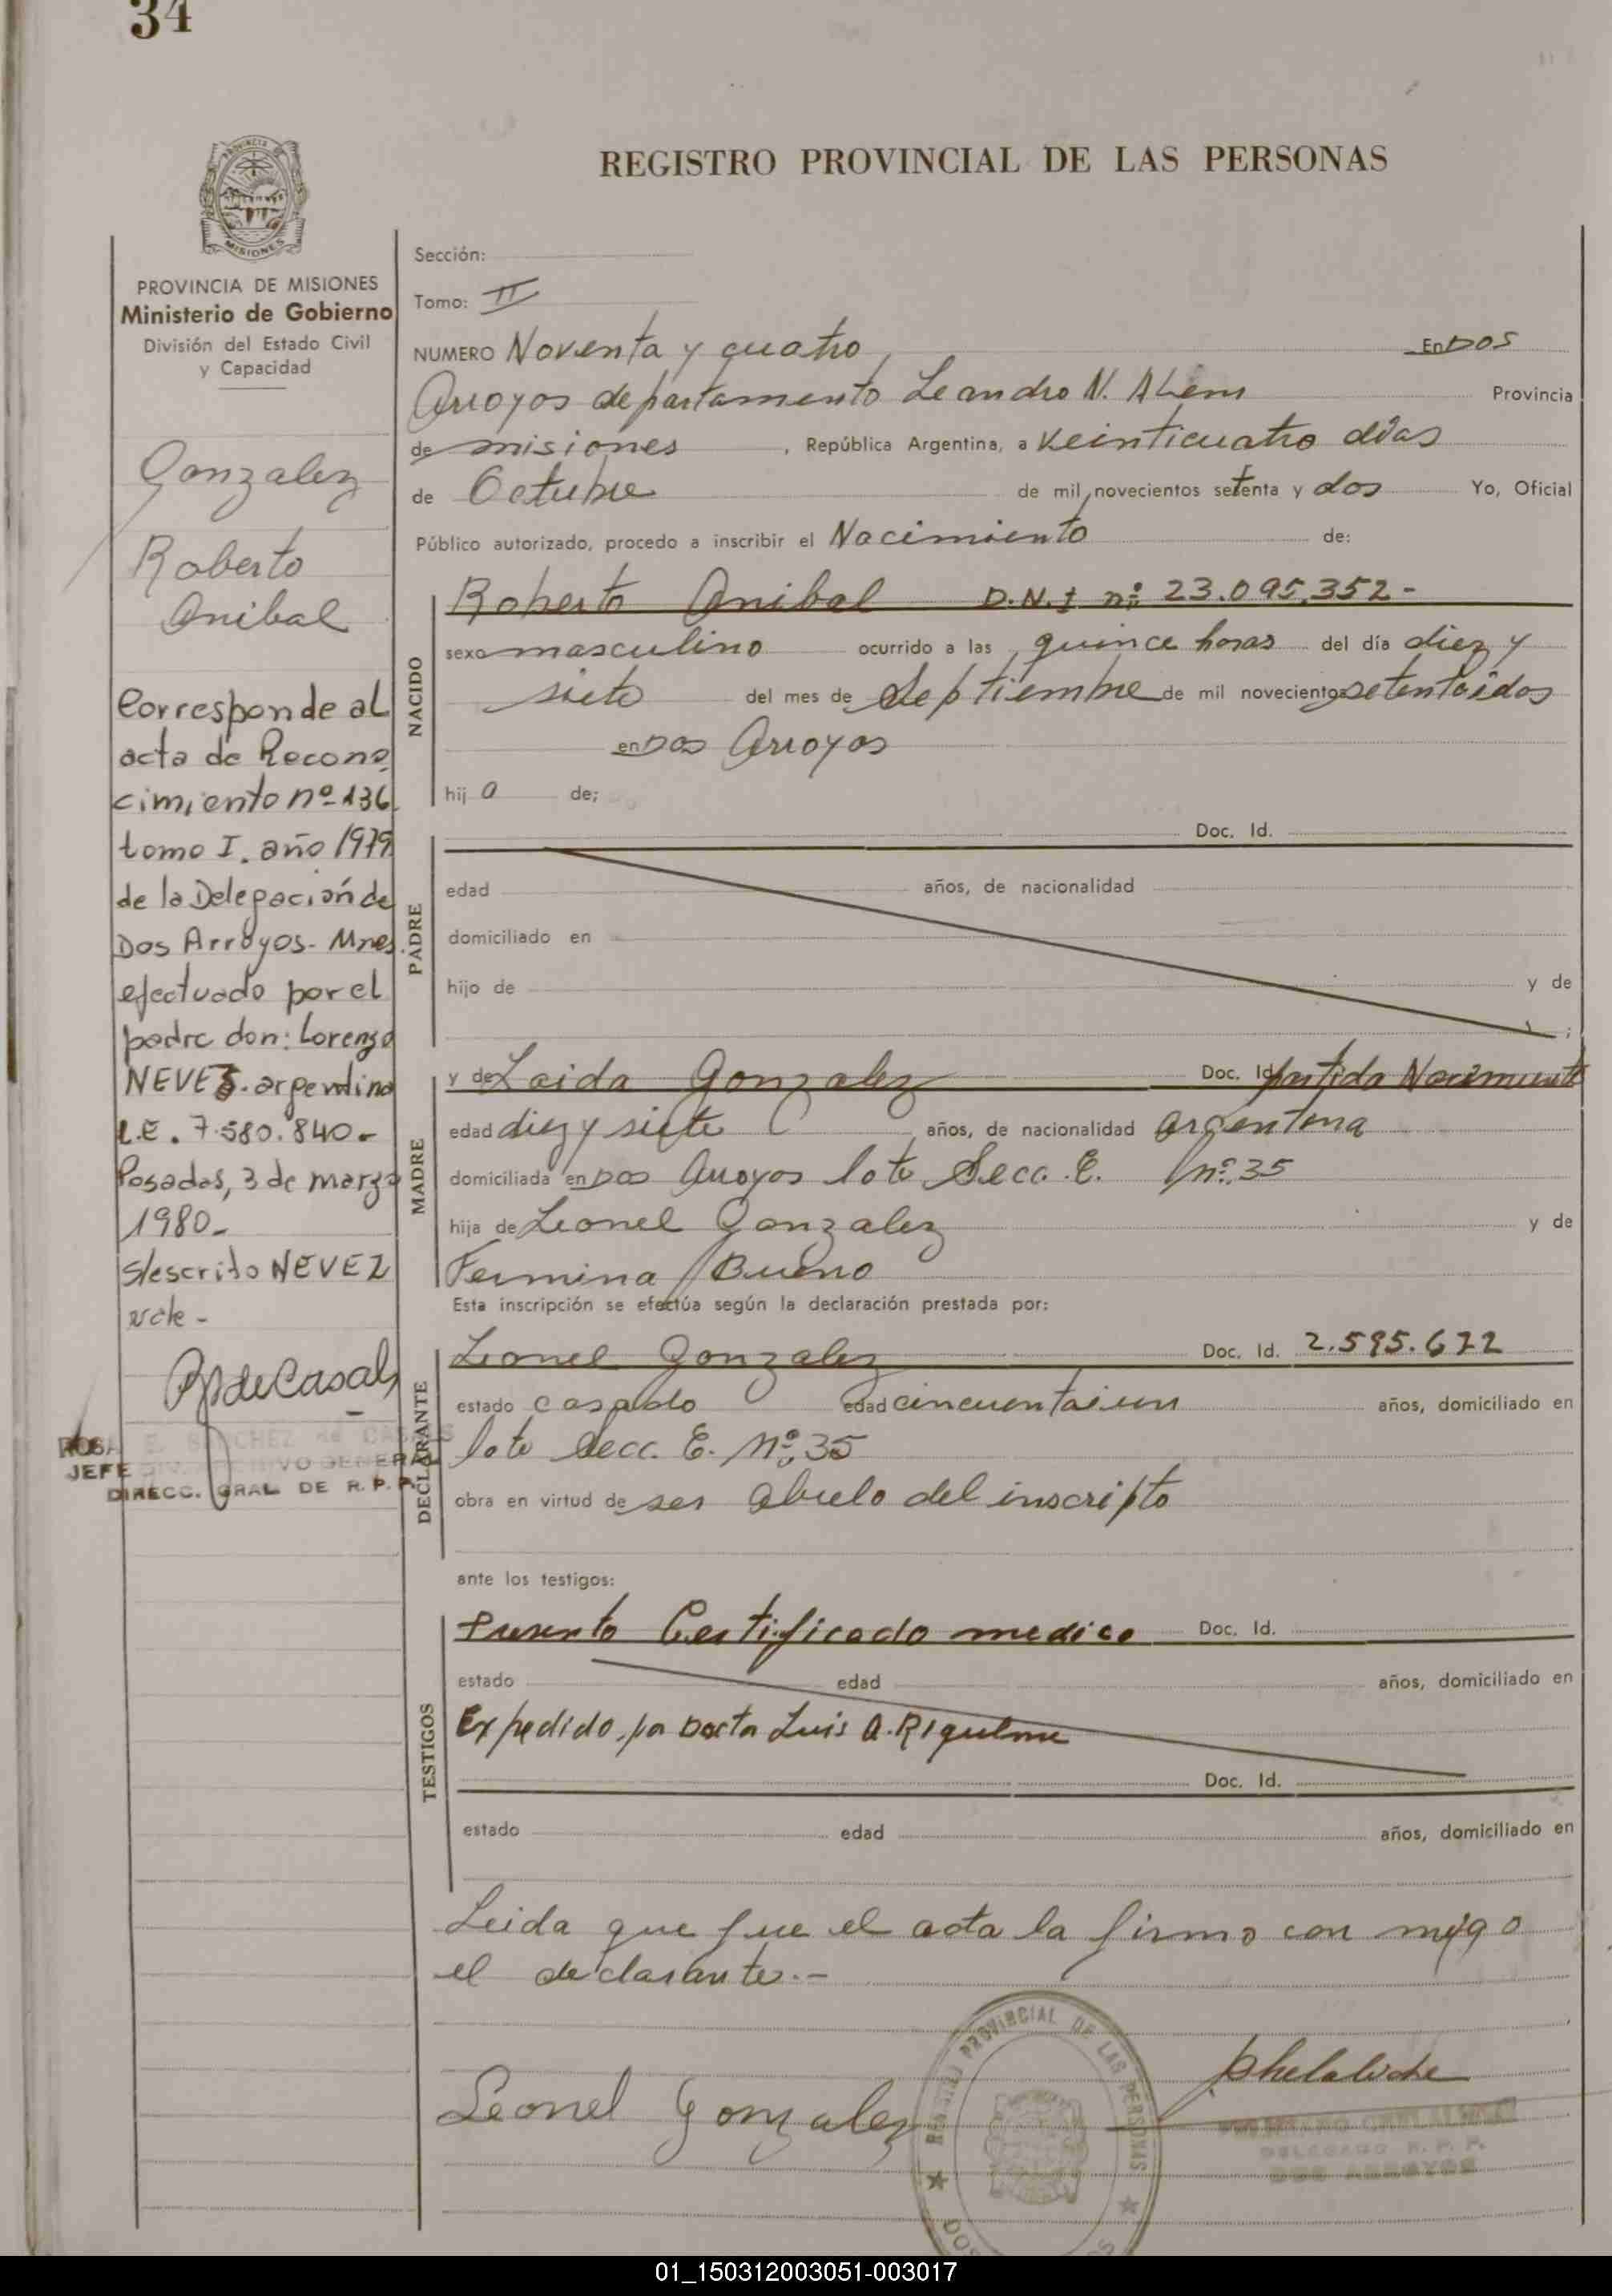 34
PROVINCIA DE
MISIONES
REGISTRO PROVINCIAL DE LAS PERSONAS
PROVINCIA DE MISIONES
Ministerio de Gobierno
División del Estado Civil
y Capacidad
Gonzalez
Roberto
Anibal
Corresponde al
acta de Recono
cimiento nº 136
tomo I. año 1979
de la Delegación de
Dos Arroyos- Mnes.
efectuado por el
padre don: Lorenzo
NEVEZ. argentino
L.E. 7.580.840.-
Posadas, 3 de marzo
1980.-
S/escrito NEVEZ
vale -
ROSA E. SANCHEZ de CASALS
JEFE DIV. ARCHIVO GENERAL
DIRECC. GRAL DE R.P.P.
Sección:
Tomo: II
NUMERO Noventa y quatro, En Dos
Arroyos departamento Leandro N. Alem Provincia
de misiones, República Argentina, a veinticuatro días
de Octubre de mil novecientos setenta y dos Yo, Oficial
Público autorizado, procedo a inscribir el Nacimiento de:
NACIDO
Roberto Anibal D.N.I nº: 23.095.352-
sexo masculino ocurrido a las quince horas del día diez y
siete del mes de Septiembre de mil novecientos setentaidos
en Dos Arroyos
hij o de;
PADRE
Doc. Id.
edad años, de nacionalidad
domiciliado en
hijo de y de
;
MADRE
y de Laida Gonzalez Doc. Id. partida Nacimiento
edad diez y siete años, de nacionalidad argentina
domiciliada en Dos Arroyos lote Secc. E. nº: 35
hija de Leonel Gonzalez y de
Fermina Bueno
Esta inscripción se efectúa según la declaración prestada por:
DECLARANTE
Leonel Gonzalez Doc. Id. 2.595.672
estado casado edad cincuentaiun años, domiciliado en
lote Secc. E. Nº: 35
obra en virtud de ser abuelo del inscripto
ante los testigos:
TESTIGOS
Presento Certificado medico Doc. Id.
estado edad años, domiciliado en
Expedido por Doctor Luis A. Riquelme
Doc. Id.
estado edad años, domiciliado en
Leida que fue el acta la firmo con migo
el declarante.-
Leonel Gonzalez
REGISTRO PROVINCIAL DE LAS PERSONAS
DELEGADO R.P.P.
DOS ARROYOS
01_150312003051-003017